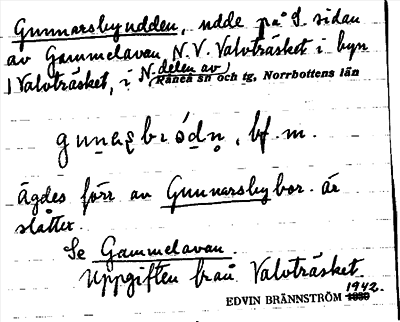 Gunnarsbyudden, udde på S. sidan
av Gammelavan N.V. Valvträsket i byn
Valvträsket, i N. delen av
Råneå sn och tg, Norrbottens län
bf. m.
Ägdes förr av Gunnarsbybor. är
slåtter.
Se Gammelavan.
Uppgiften från Valvträsket.
1942.
EDVIN BRÄNNSTRÖM 1939